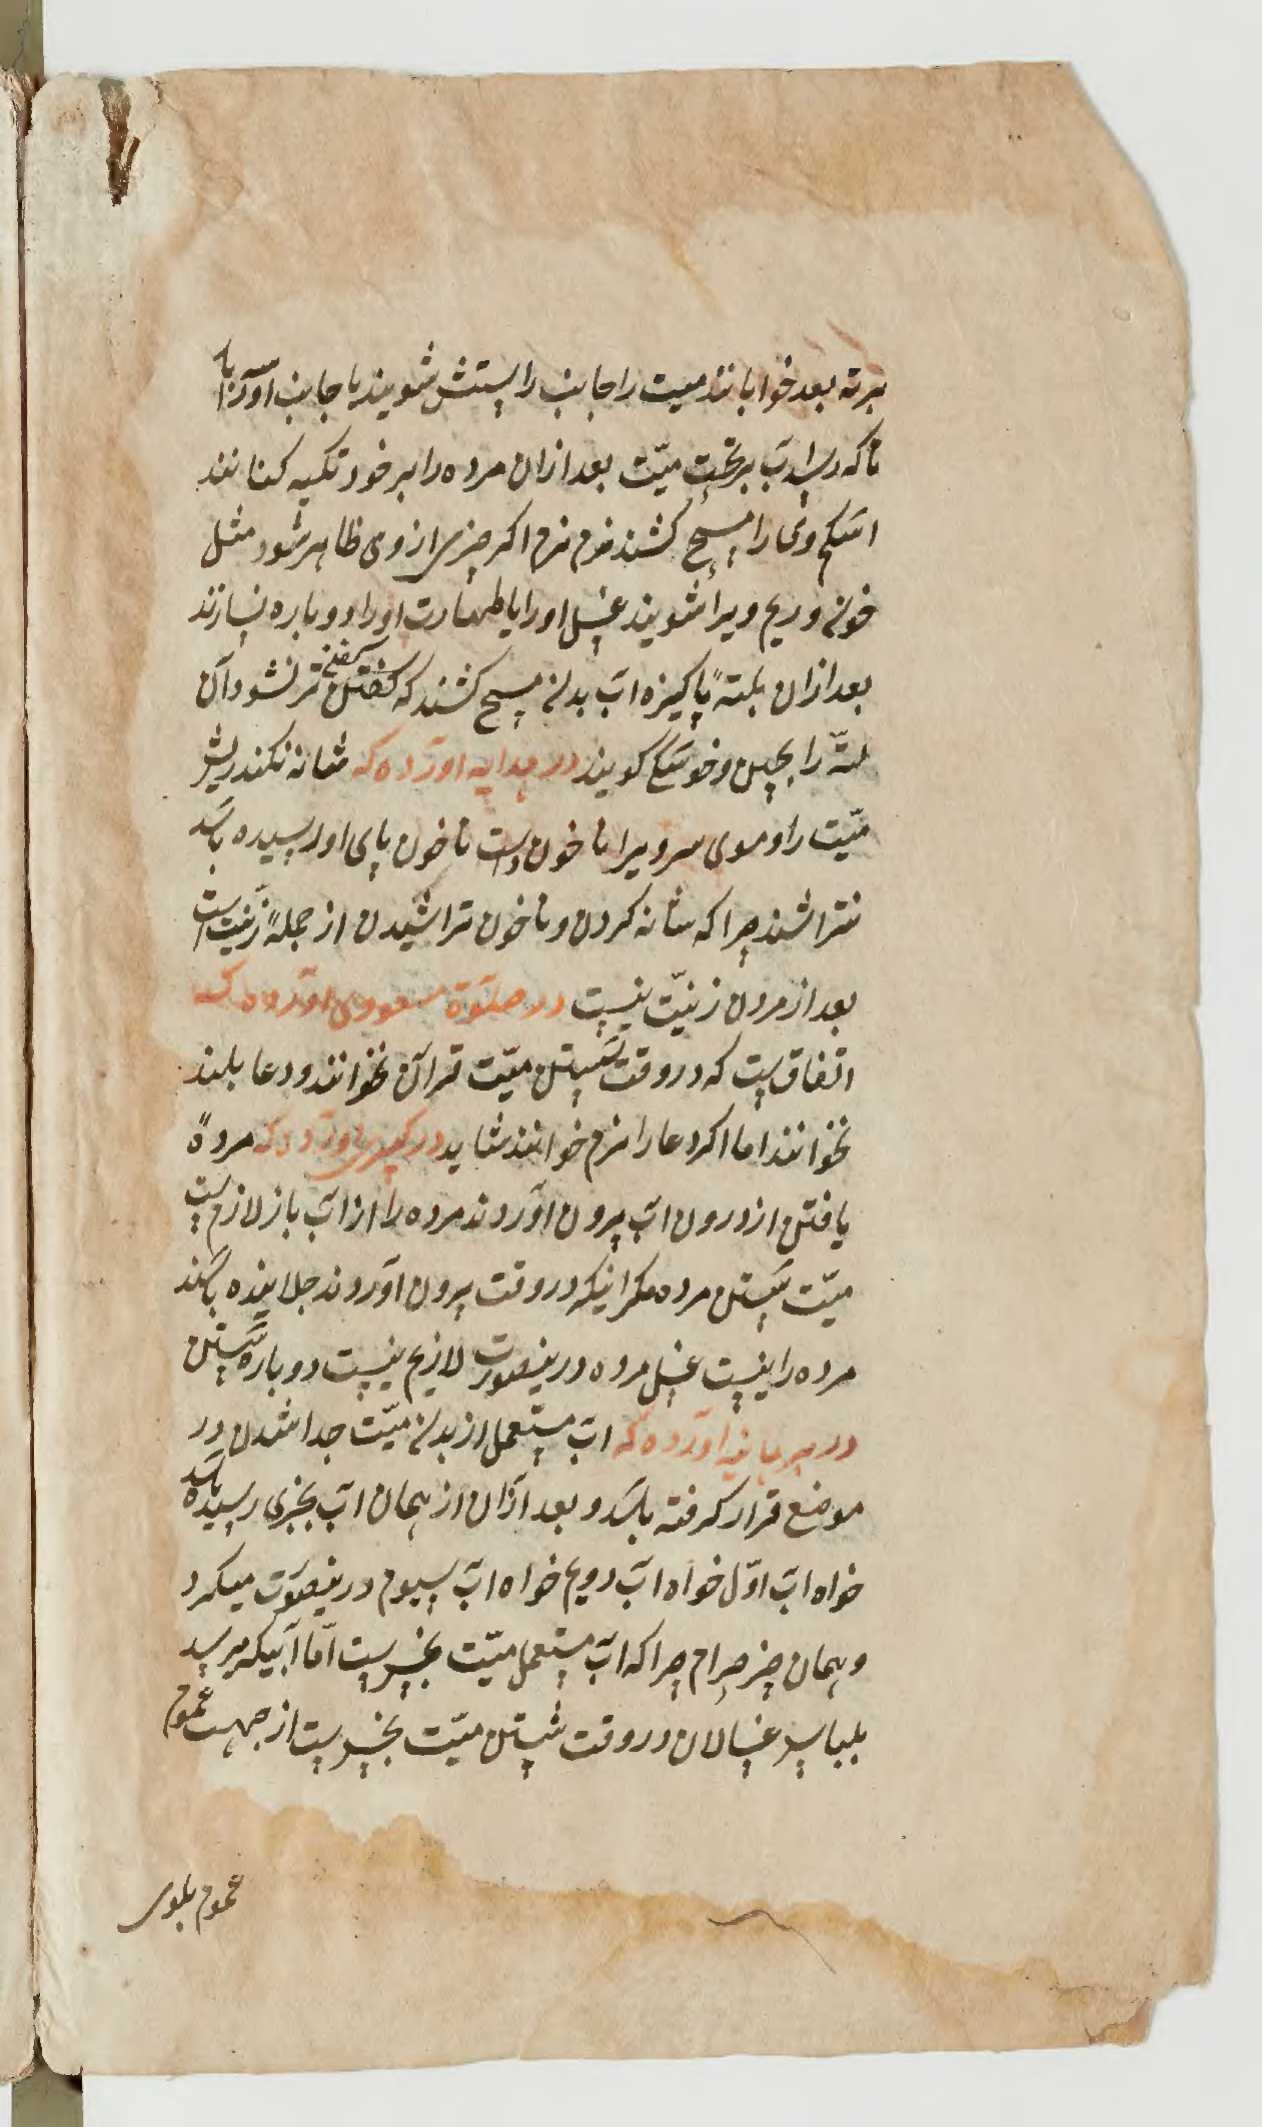 مرته بعد خوابانند میت را جانب راستش شویند یا جانب
تا که رسد آب بر تخت میّت بعد ازان مرده را بر خود تکیه کنانند
اشکم وی را مسح کشند نرم نرم اکر چیزی از وی ظاهر شود مثل
خون و ریم ویرا شویند غسل اورا یا طهارت اورا دوباره نسازند
بعد ازان بلتهٔ پاکیزه آب بدن مسح کشند که کفنش تر نشود آن
لتّه را بچین و خوشکی کویند در هدایه آورده که شانه نکنند ریش
میّت را و موی سر ویرا ناخون دست ناخون پای او رسیده باشد
نتراشند چرا که شانه کردن و ناخون تراشیدن از جملهٔ زینت است
بعد از مردن زینّت نیست در صلوة مسعودی آورده که
اتفاق است که در وقت شستن میّت قرآن نخوانند و دعا بلند
نخوانند اما اکر دعا را نرم خوانند شاید در کبری آورده که مردهٔ
یافتن از درون آب بیرون آوردند مرده را از آب باز لازم است
میّت شستن مرده مکر اینکه در وقت بیرون آوردند جلاینده باشند
مرده را نیست غسل مرده درینصورت لازم نیست دوباره شستن
در برهانیه آورده که آب مستعمل از بدن میّت جدا شدن در
موضع قرار کرفته باشد و بعد ازان از همان آب بچیزی رسیده باشد
خواه آب اوّل خواه آب دویم خواه آب سیوم درینصورت میکرد
و همان چیز حرام چرا که آب مستعمل میّت نجس است امّا آبیکه میرسد
بلباس غسالان در وقت شستن میّت نجس است از جهت عموم
عموم بلوی